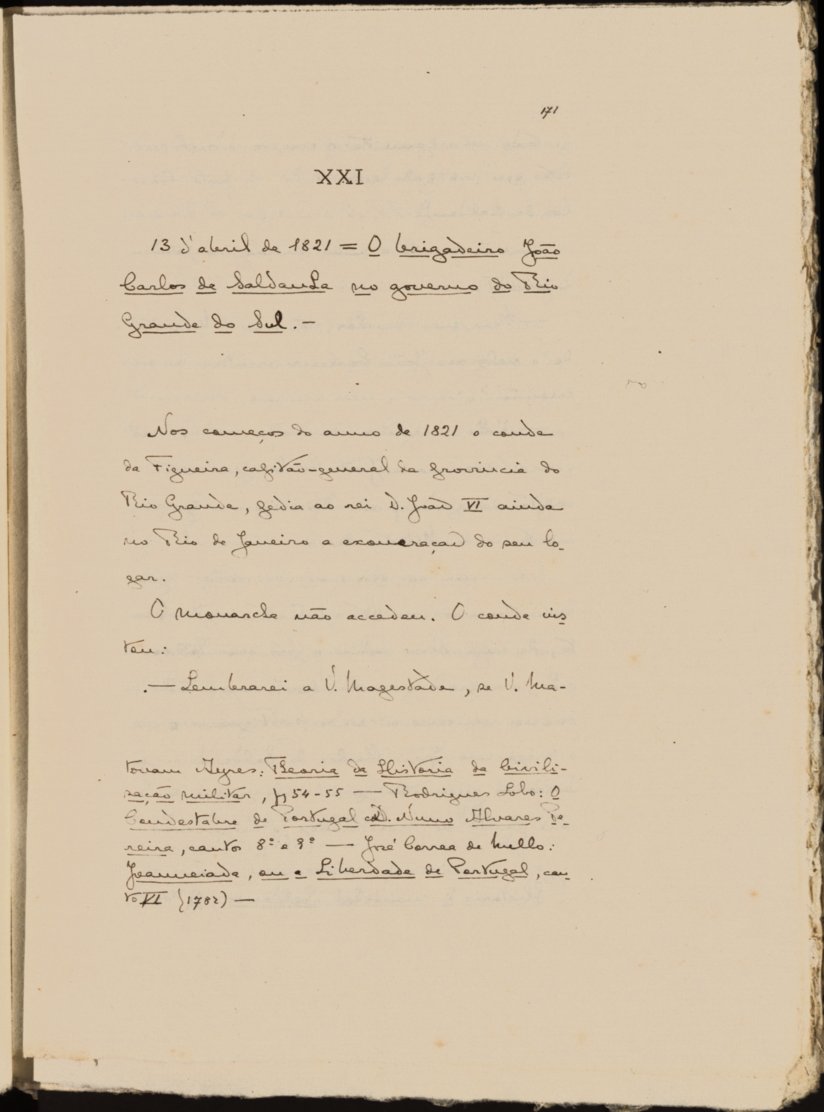 171
XXI
13 d'abril de 1821 = O brigadeiro João
Carlos de Saldanha no governo do Rio
Grande do Sul. —
Nos começos do anno de 1821 o conde
da Figueira, capitão-general da provincia do
Rio Grande, pedia ao rei D. João VI ainda
no Rio de Janeiro a exoneração do seu lo-
gar.
O monarcha não accedeu. O conde ins
teu:
— Lembrarei a V. Magestade, se V. Ma-
tovam Ayres: Theoria da Historia da Civili-
zação militar, p 54-55 — Rodrigues Lobo: O
Condestabre de Portugal D. Nuno Alvares Pe-
reira, cantos 8º e 9º — José Correa de Mello:
Joanneiada, ou a Liberdade de Portugal, can-
to VI (1782) —